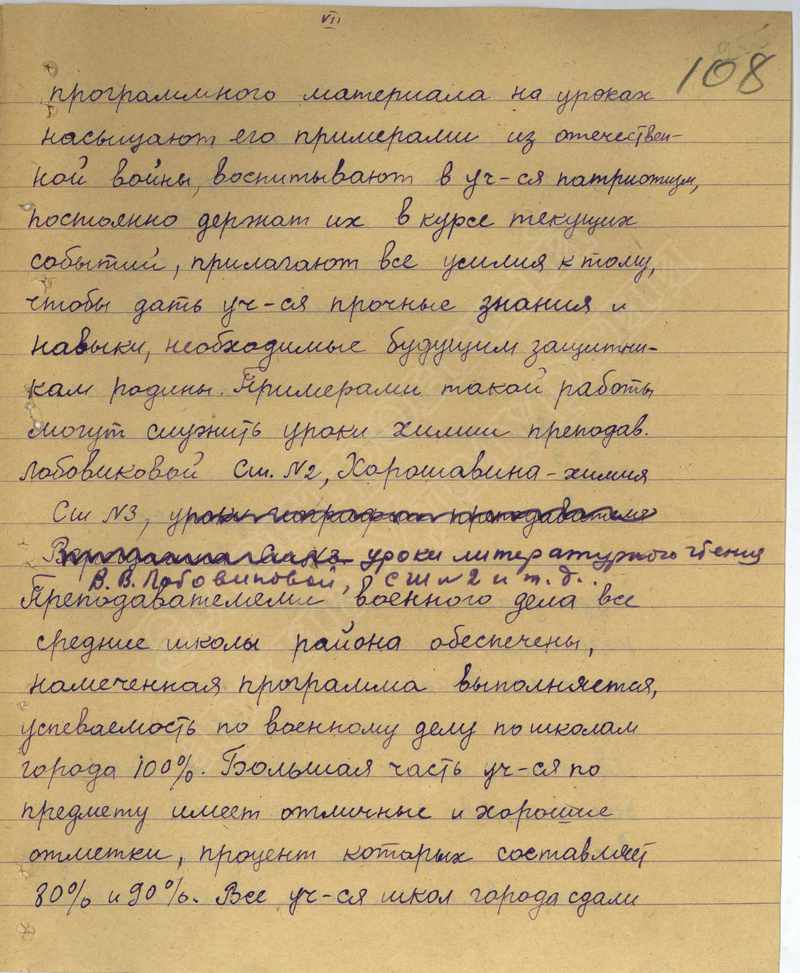 VII
108
программного материала на уроках
насыщают его примерами из отечествен-
ной войны, воспитывают в уч-ся патриотизм,
постоянно держат их в курсе текущих
событий, прилагают все усилия к тому,
чтобы дать уч-ся прочные знания и
навыки, необходимые будущим защитни-
кам родины. Примерами такой работы
могут служить уроки химии преподав.
Лобовиковой Сш. N2, Хорошавина - химия
Сш N3, уроки географии преподавателя
Сш N3 уроки литературного чтения
В.В. Лобовиковой, сш N2 и т.д..
Преподавателеми военного дела все
средние школы района обеспечены,
намеченная программа выполняется,
успеваемость по военному делу по школам
города 100%. Большая часть уч-ся по
предмету имеет отличные и хорошие
отметки, процент которых составляет
80% и 90%. Все уч-ся школ города сдали